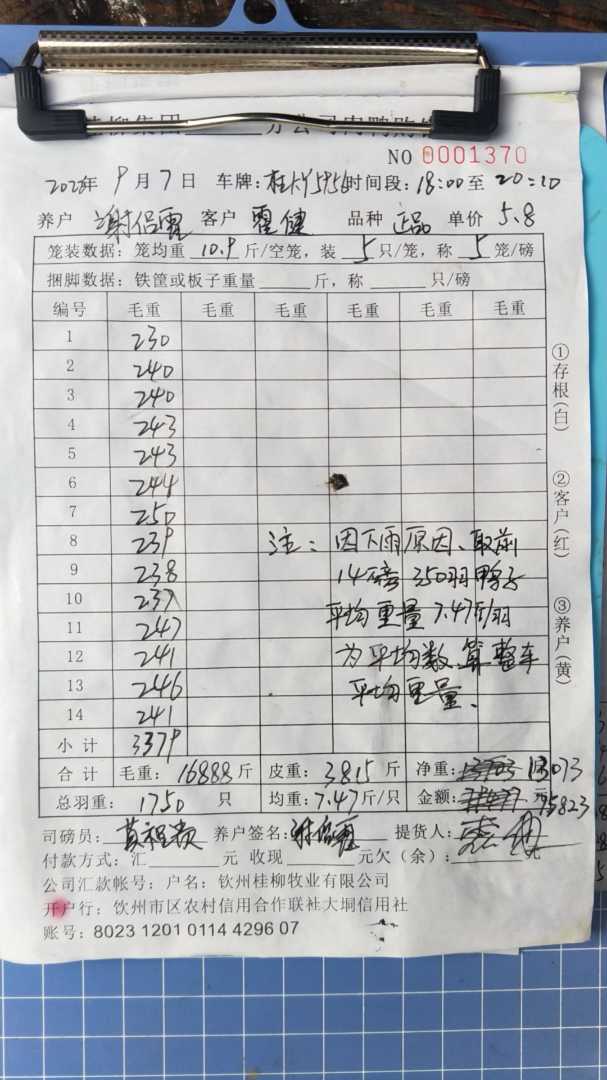 柳集团 分公司肉鸭购
NO 0001370
年 9 月 7 日 车牌: 时间段: 18:00 至 20:10
养户 谢侣霞 客户 霍健 品种 正品 单价 5.8
笼装数据: 笼均重 10.9 斤/空笼, 装 5 只/笼, 称 5 笼/磅
捆脚数据: 铁筐或板子重量 斤, 称 只/磅
编号 毛重 毛重 毛重 毛重 毛重 毛重
1 230
2 240
3 240
4 243
5 243
6 244
7 250
8 239
9 238
10 237
11 247
12 241
13 246
14 241
小计 3379
注: 因下雨原因、取前
14磅 350羽鸭子
平均重量 7.47斤/羽
为平均数、算整车
平均重量、
合计 毛重: 16888 斤 皮重: 3815 斤 净重: 13073
总羽重: 1750 只 均重: 7.47 斤/只 金额: 75823 元
司磅员: 养户签名: 谢侣霞 提货人:
付款方式: 汇 元 收现 元欠(余): 元
公司汇款帐号: 户名: 钦州桂柳牧业有限公司
开户行: 饮州市区农村信用合作联社大垌信用社
账号: 8023 1201 0114 4296 07
①存根(白)
②客户(红)
③养户(黄)